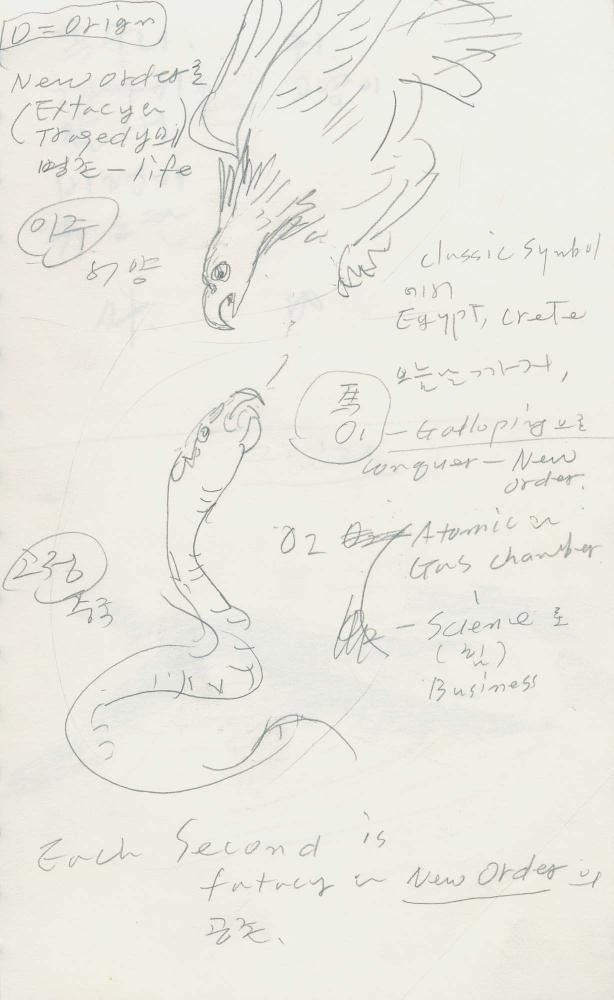 O = Origin
New order로
(Extacy와
Tragedy의)
병존 - life
이주
서양
classic symbol
에서
Egypt, Crete
오늘날까지,
馬
O1 - Galloping으로
conquer - New
order.
O2 - Atomic와
Gas chamber
고정
동국
- Science로
(힘)
Business
Each Second is
Extacy와 New Order의
공존.